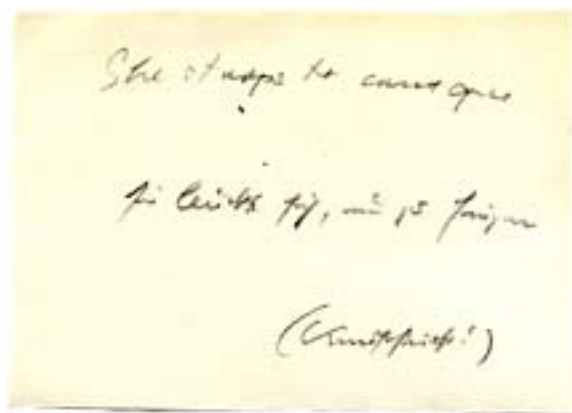 She stoops to conquer
sie bückt sich, um zu siegen
(Kunststück!)